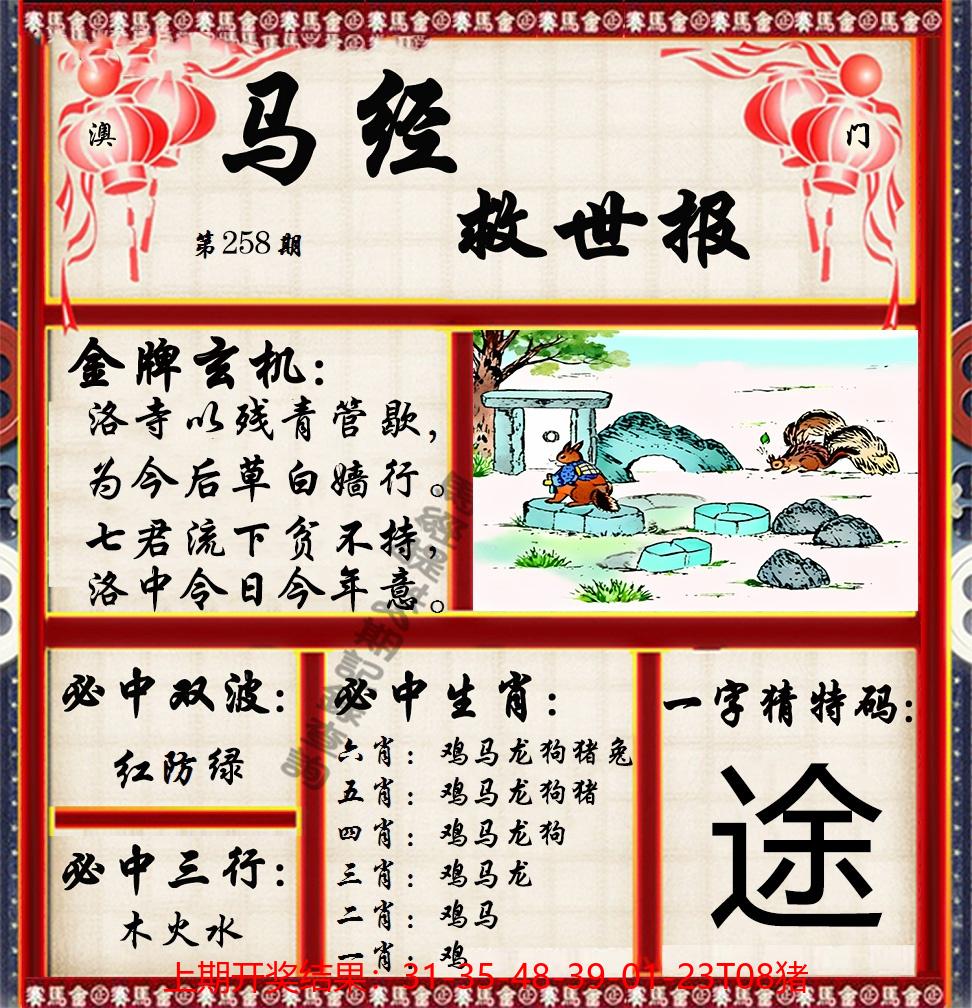 賽馬會
澳
门
马经
救世报
第258期
金牌玄机：
洛寺以残青管歇，
为今后草白嫱行。
七君流下贫不持，
洛中令日今年意。
必中双波：
红防绿
必中三行：
木火水
必中生肖：
六肖：鸡马龙狗猪兔
五肖：鸡马龙狗猪
四肖：鸡马龙狗
三肖：鸡马龙
二肖：鸡马
一肖：鸡
一字猜特码：
途
上期开奖结果：31-35-48-39-01-23T08猪